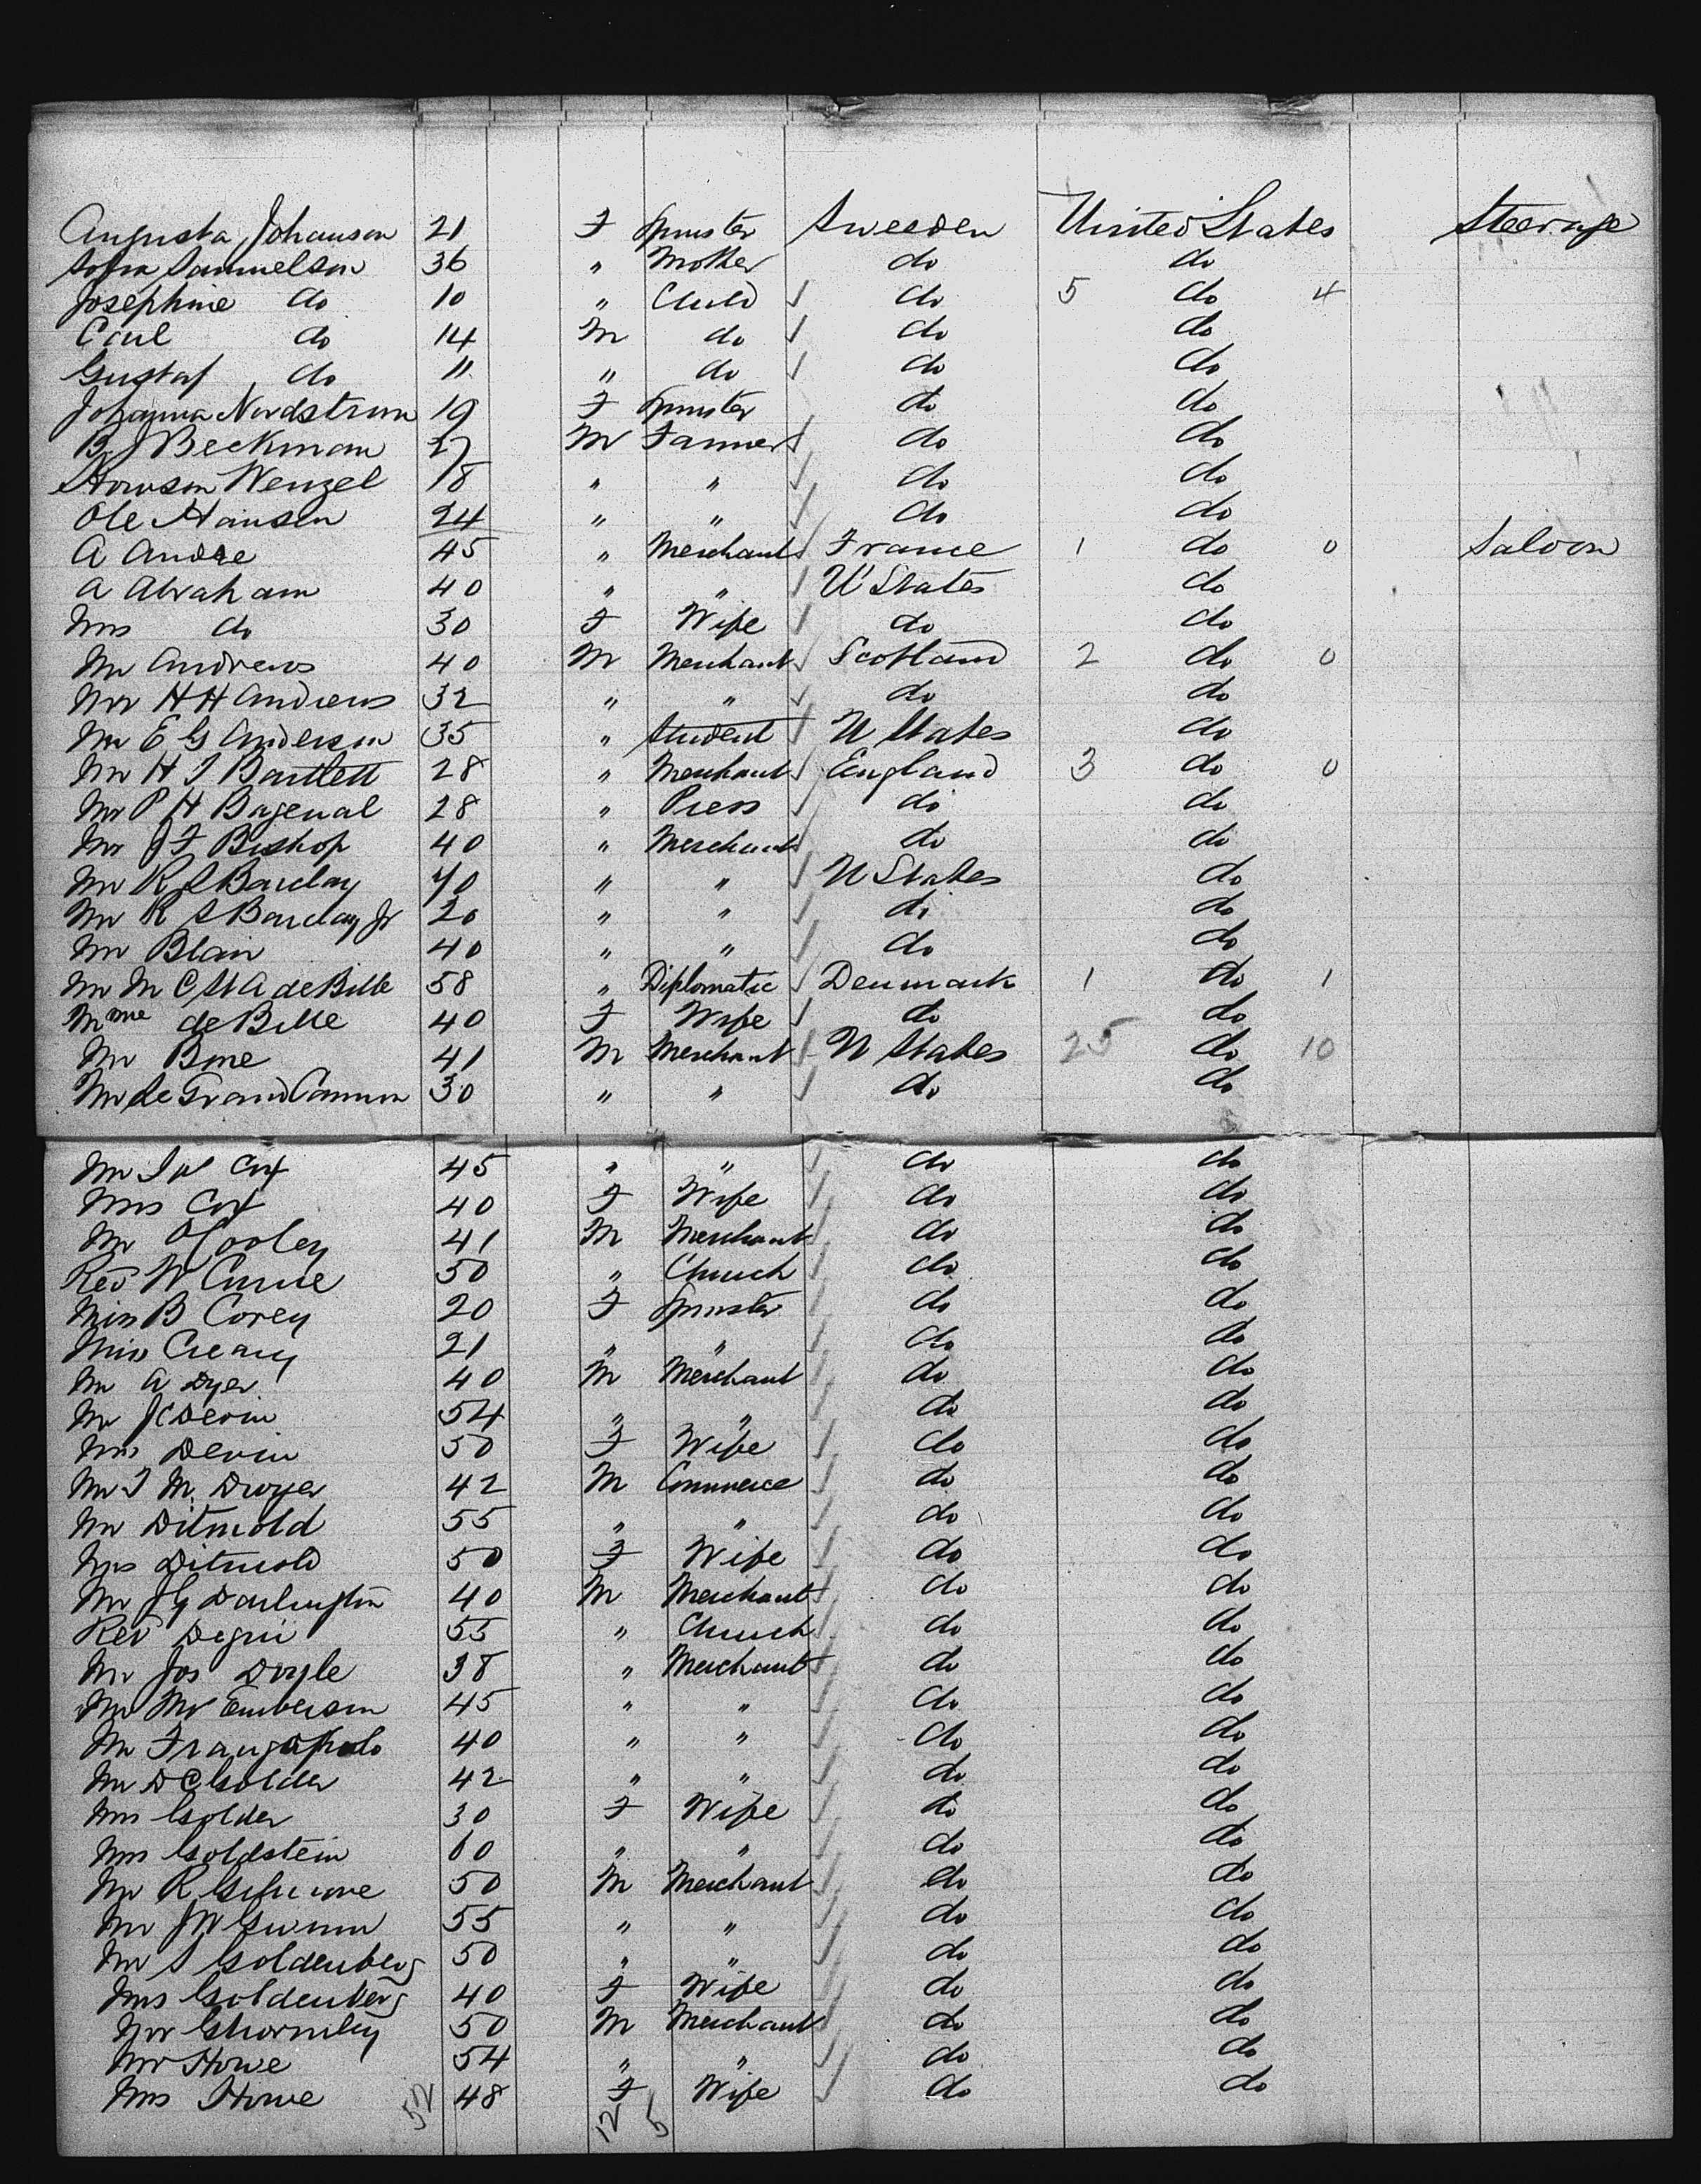 Augusta Johanson 21 F Spinster Sweeden United States Steerage
Sofia Samuelson 36 " Mother do do
Josephine do 10 " Child do 5 do 4
Carl do 14 M do do do
Gustaf do 11 " do do do
Johanna Nordstrom 19 F Spinster do do
B J Beckman 27 M Farmer do do
Wenzel 18 " " do do
Ole Hansen 24 " " do do
A Andre 45 " Merchant France 1 do 0 Saloon
A Abraham 40 " " U States do
Mrs do 30 F Wife do do
Mr Andrews 40 M Merchant Scotland 2 do 0
Mr H H Andrews 32 " " do do
Mr E G Anderson 35 " Student U States do
Mr H J Bartlett 28 " Merchant England 3 do 0
Mr P H Bagenal 28 " Press do do
Mr J F Bishop 40 " Merchant do do
Mr R S Barclay 40 " " U States do
Mr R S Barclay Jr 20 " " do do
Mr Blair 40 " " do do
Mr M C St A de Bille 58 " Diplomatic Denmark 1 do 1
Mme de Bille 40 F Wife do do
Mr Bone 41 M Merchant U States 25 do 10
Mr Le Grand Cannon 30 " " do do
Mr Cox 45 " " do do
Mrs Cox 40 F Wife do do
Mr Cooley 41 M Merchant do do
Rev W 50 " Church do do
Miss B Corey 20 F Spinster do do
Miss Creary 21 " " do do
Mr A Dyer 40 M Merchant do do
Mr J C Devin 54 " " do do
Mrs Devin 50 F Wife do do
Mr T M Dwyer 42 M Commerce do do
Mr Ditmold 55 " " do do
Mrs Ditmold 50 F Wife do do
Mr J G Darlington 40 M Merchant do do
Rev 55 " Church do do
Mr Jos Doyle 38 " Merchant do do
Mr Emberson 45 " " do do
Mr 40 " " do do
Mr D C Golder 42 " " do do
Mrs Golder 30 F Wife do do
Mrs Goldstein 60 " " do do
Mr R Gilmore 50 M Merchant do do
Mr J W 55 " " do do
Mr S Goldenberg 50 " " do do
Mrs Goldenberg 40 F Wife do do
Mr Ghormley 50 M Merchant do do
Mr Howe 54 " " do do
Mrs Howe 48 F Wife do do
52 12 5